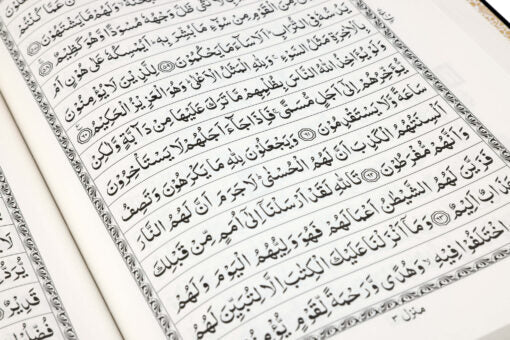 عَمَّا كُنْتُمْ
وَلَهُمْ مَّا يَشْتَهُوْنَ
ظَلَّ وَجْهُهٗ مُسْوَدًّا وَّهُوَ كَظِيْمٌ
مِنَ الْقَوْمِ مِنْ سُوْٓءِ مَا بُشِّرَ بِهٖ اَيُمْسِكُهٗ عَلٰى هُوْنٍ اَمْ
يَدُسُّهٗ فِى التُّرَابِ اَلَا سَآءَ مَا يَحْكُمُوْنَ ۝۵۹ لِلَّذِيْنَ لَا يُؤْمِنُوْنَ
بِالْاٰخِرَةِ مَثَلُ السَّوْءِ وَلِلّٰهِ الْمَثَلُ الْاَعْلٰى وَهُوَ الْعَزِيْزُ الْحَكِيْمُ ۝۶۰
وَلَوْ يُؤَاخِذُ اللّٰهُ النَّاسَ بِظُلْمِهِمْ مَّا تَرَكَ عَلَيْهَا مِنْ دَآبَّةٍ وَّلٰكِنْ
يُّؤَخِّرُهُمْ اِلٰٓى اَجَلٍ مُّسَمًّى فَاِذَا جَآءَ اَجَلُهُمْ لَا يَسْتَاْخِرُوْنَ
سَاعَةً وَّلَا يَسْتَقْدِمُوْنَ ۝۶۱ وَيَجْعَلُوْنَ لِلّٰهِ مَا يَكْرَهُوْنَ وَتَصِفُ
اَلْسِنَتُهُمُ الْكَذِبَ اَنَّ لَهُمُ الْحُسْنٰى لَا جَرَمَ اَنَّ لَهُمُ النَّارَ
وَاَنَّهُمْ مُّفْرَطُوْنَ ۝۶۲ تَاللّٰهِ لَقَدْ اَرْسَلْنَآ اِلٰٓى اُمَمٍ مِّنْ قَبْلِكَ
فَزَيَّنَ لَهُمُ الشَّيْطٰنُ اَعْمَالَهُمْ فَهُوَ وَلِيُّهُمُ الْيَوْمَ وَلَهُمْ
عَذَابٌ اَلِيْمٌ ۝۶۳ وَمَآ اَنْزَلْنَا عَلَيْكَ الْكِتٰبَ اِلَّا لِتُبَيِّنَ لَهُمُ
اخْتَلَفُوْا فِيْهِ وَهُدًى وَّرَحْمَةً لِّقَوْمٍ يُّؤْمِنُ
منزل ۳
يُرَدُّ
قَدِيْرٌ
فُضِّلُوْا